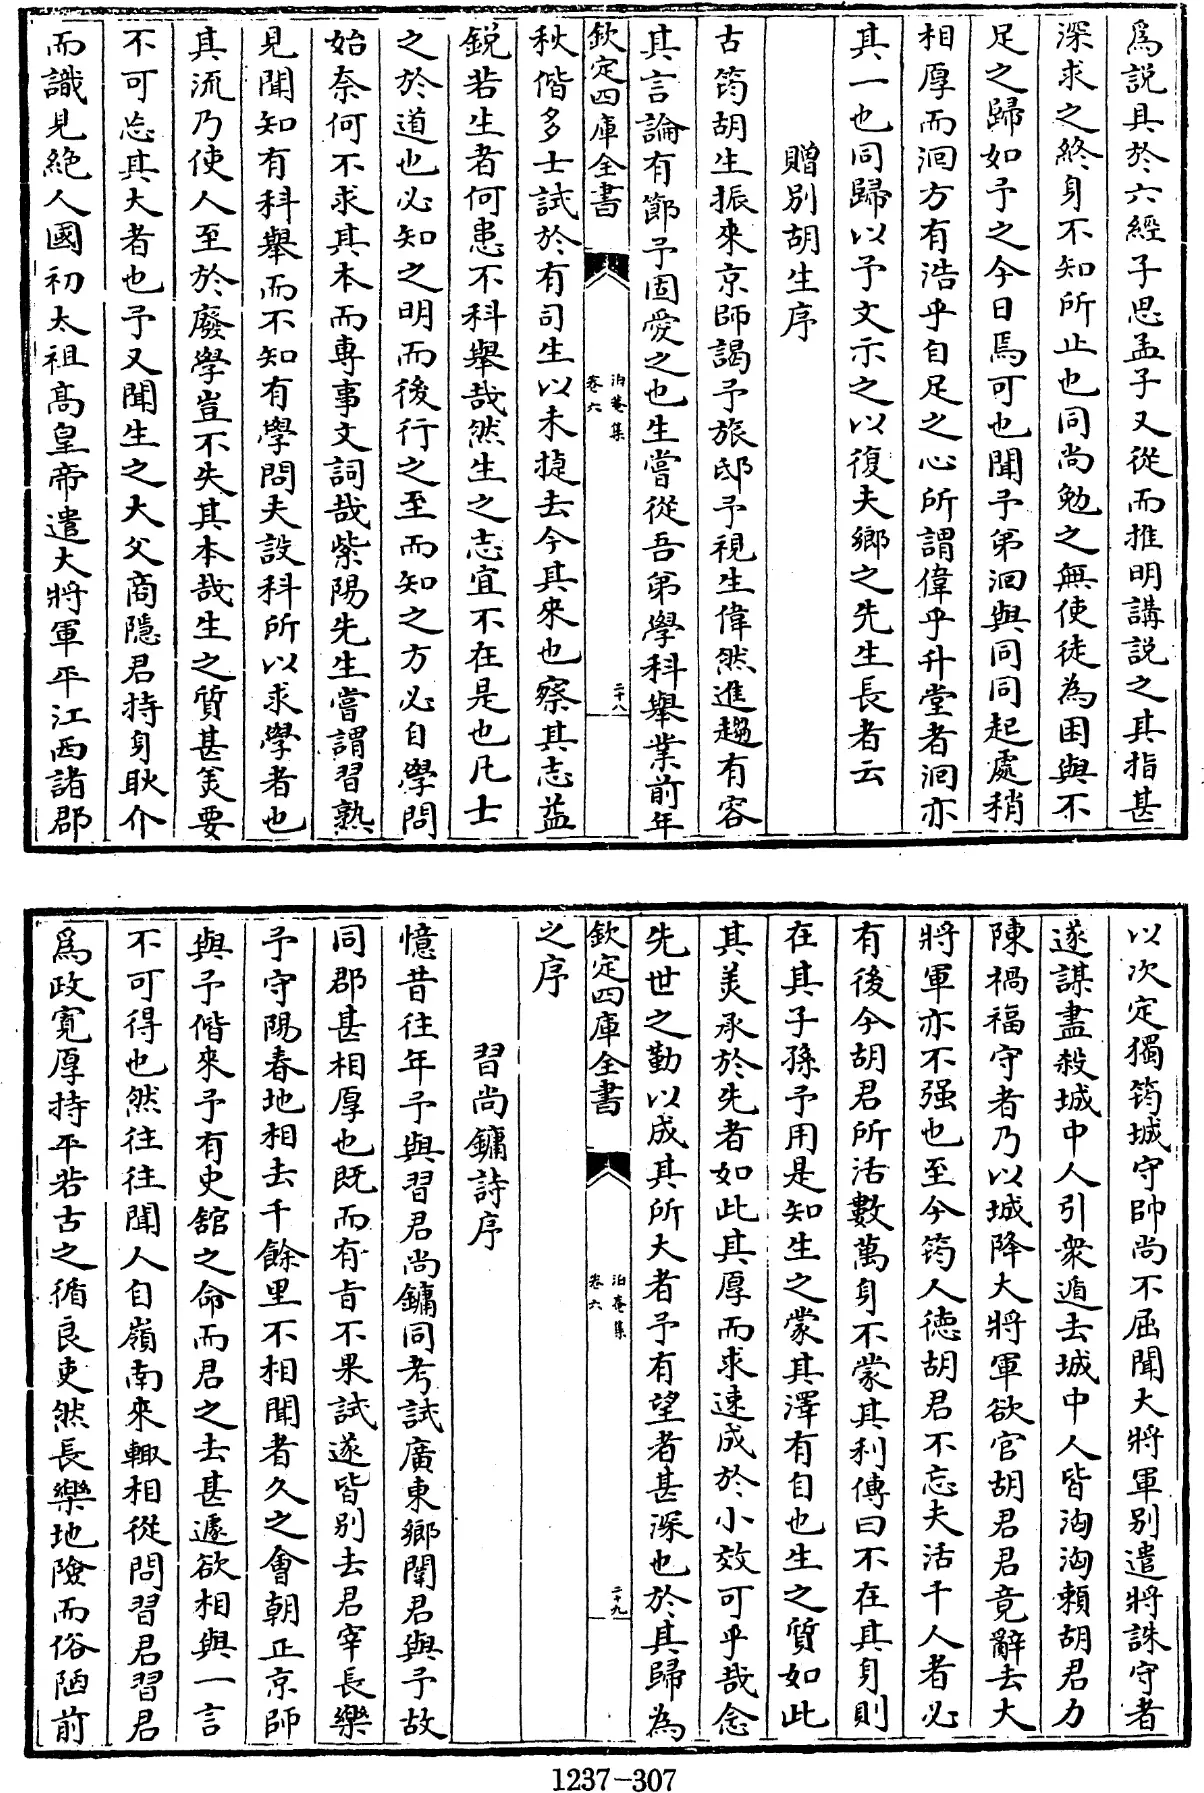 爲説具於六經子思孟子又從而推明講説之其指甚
深求之終身不知所止也同尚勉之無使徒為困與不
足之歸如予之今日焉可也聞予弟洄與同同起處稍
相厚而洄方有浩乎自足之心所謂偉乎升堂者洄亦
其一也同歸以予文示之以復夫鄉之先生長者云
贈别胡生序
古筠胡生振來京師謁予旅邸予視生偉然進趨有容
其言論有節予固愛之也生嘗從吾弟學科舉業前年
欽定四庫全書
泊菴集
卷六
二十八
秋偕多士試於有司生以未㨗去今其來也察其志益
鋭若生者何患不科舉哉然生之志宜不在是也凡士
之於道也必知之明而後行之至而知之方必自學問
始奈何不求其本而專事文詞哉紫陽先生嘗謂習熟
見聞知有科舉而不知有學問夫設科所以求學者也
其流乃使人至於廢學豈不失其本哉生之質甚美要
不可忘其大者也予又聞生之大父商隱君持身耿介
而識見絶人國初太祖高皇帝遣大將軍平江西諸郡
以次定獨筠城守帥尚不屈聞大將軍别遣將誅守者
遂謀盡殺城中人引衆遁去城中人皆洶洶賴胡君力
陳禍福守者乃以城降大將軍欲官胡君君竟辭去大
將軍亦不强也至今筠人德胡君不忘夫活千人者必
有後今胡君所活數萬身不蒙其利傳曰不在其身則
在其子孫予用是知生之蒙其澤有自也生之質如此
其美承於先者如此其厚而求速成於小效可乎哉念
先世之勤以成其所大者予有望者甚深也於其歸為
欽定四庫全書
泊菴集
卷六
二十九
之序
習尚鏞詩序
憶昔往年予與習君尚鏞同考試廣東鄉闈君與予故
同郡甚相厚也既而有㫖不果試遂皆别去君宰長樂
予守陽春地相去千餘里不相聞者久之會朝正京師
與予偕來予有史舘之命而君之去甚遽欲相與一言
不可得也然往往聞人自嶺南來輙相從問習君習君
爲政寛厚持平若古之循良吏然長樂地險而俗陋前
1237-307